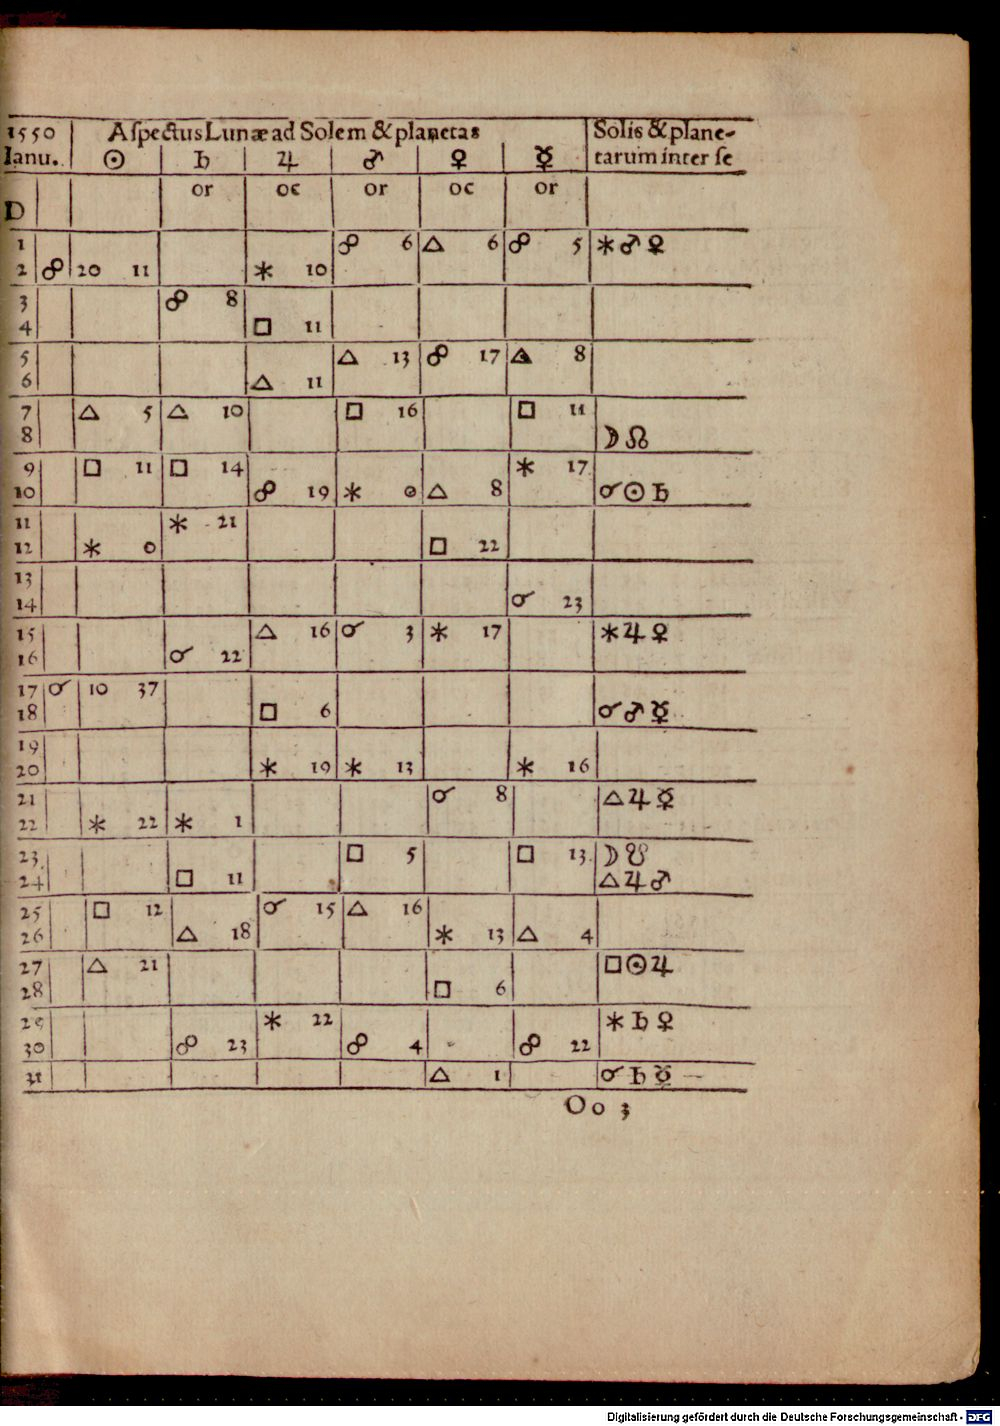 1550 Aſpectus Lunæ ad Solem & planetas Solis & plane-
Ianu. ☉ ♄ ♃ ♂ ♀ ☿ tarum inter ſe
or oc or oc or
D
1 ☍ 6 △ 6 ☍ 5 ⚹ ♂ ♀
2 ☍ 20 11 ⚹ 10
3 ☍ 8
4 □ 11
5 △ 13 ☍ 17 △ 8
6 △ 11
7 △ 5 △ 10 □ 16 □ 11
8 ☽ ☊
9 □ 11 □ 14 ⚹ 17
10 ☍ 19 ⚹ 0 △ 8 ☌ ☉ ♄
11 ⚹ 21
12 ⚹ 0 □ 22
13
14 ☌ 23
15 △ 16 ☌ 3 ⚹ 17 ⚹ ♃ ♀
16 ☌ 22
17 ☌ 10 37
18 □ 6 ☌ ♂ ☿
19
20 ⚹ 19 ⚹ 13 ⚹ 16
21 ☌ 8 △ ♃ ☿
22 ⚹ 22 ⚹ 1
23 □ 5 □ 13 ☽ ☋
24 □ 11 △ ♃ ♂
25 □ 12 ☌ 15 △ 16
26 △ 18 ⚹ 13 △ 4
27 △ 21 □ ☉ ♃
28 □ 6
29 ⚹ 22 ⚹ ♄ ♀
30 ☍ 23 ☍ 4 ☍ 22
31 △ 1 ☌ ♄ ☿
Oo 3
Digitalisierung gefördert durch die Deutsche Forschungsgemeinschaft - DFG